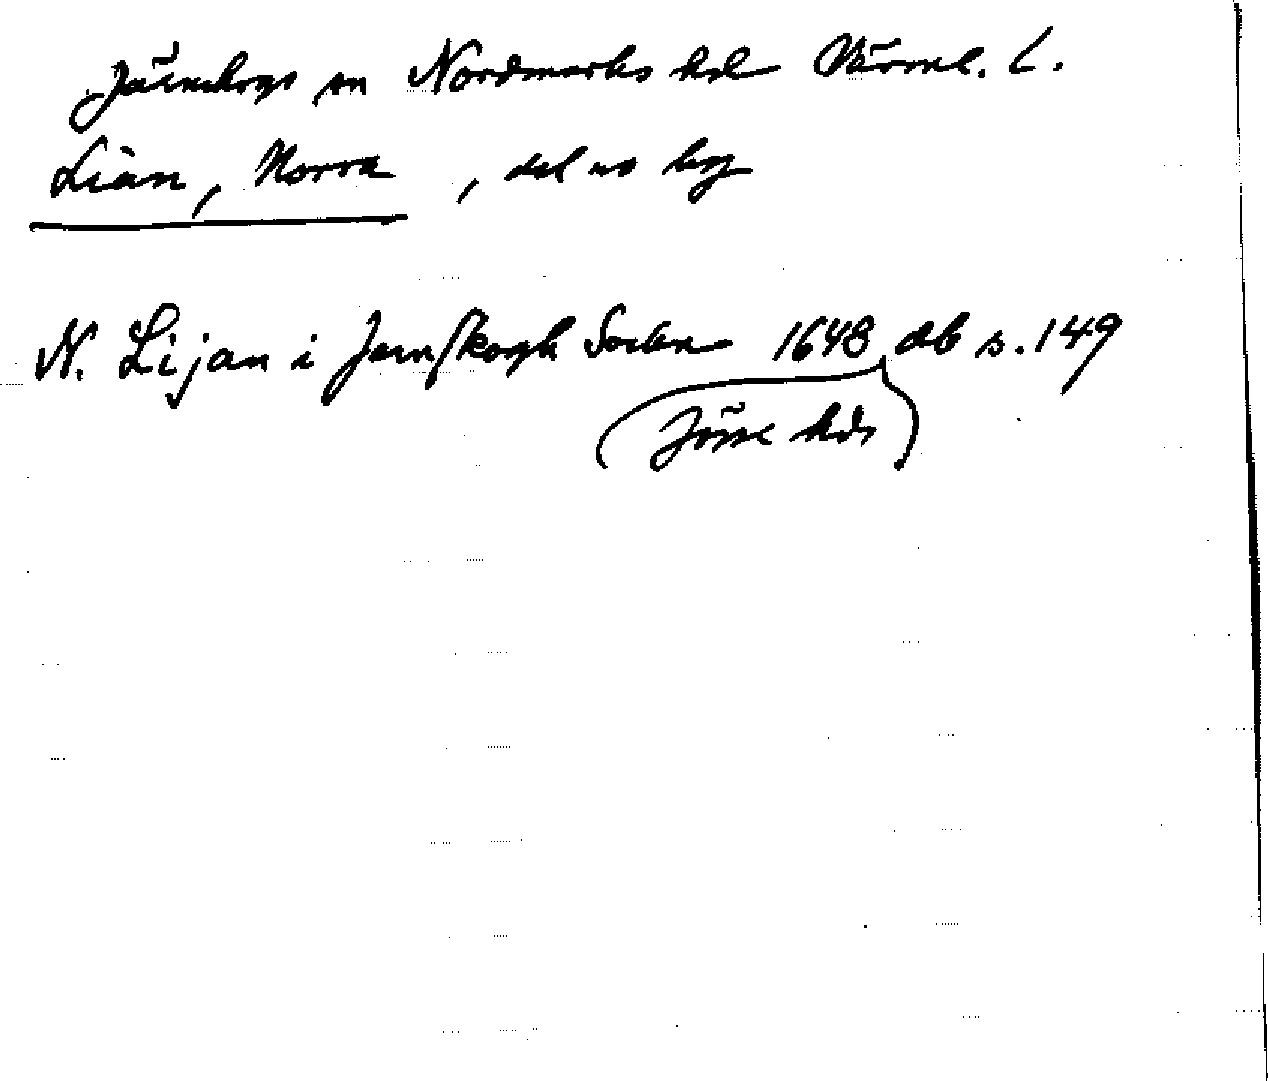 Järnskogs sn Nordmarks hd Värml. L.
Lian, Norra, del av by
N. Lijan i Jernskogh Sockn 1648 db s. 149
(Jösse hds)